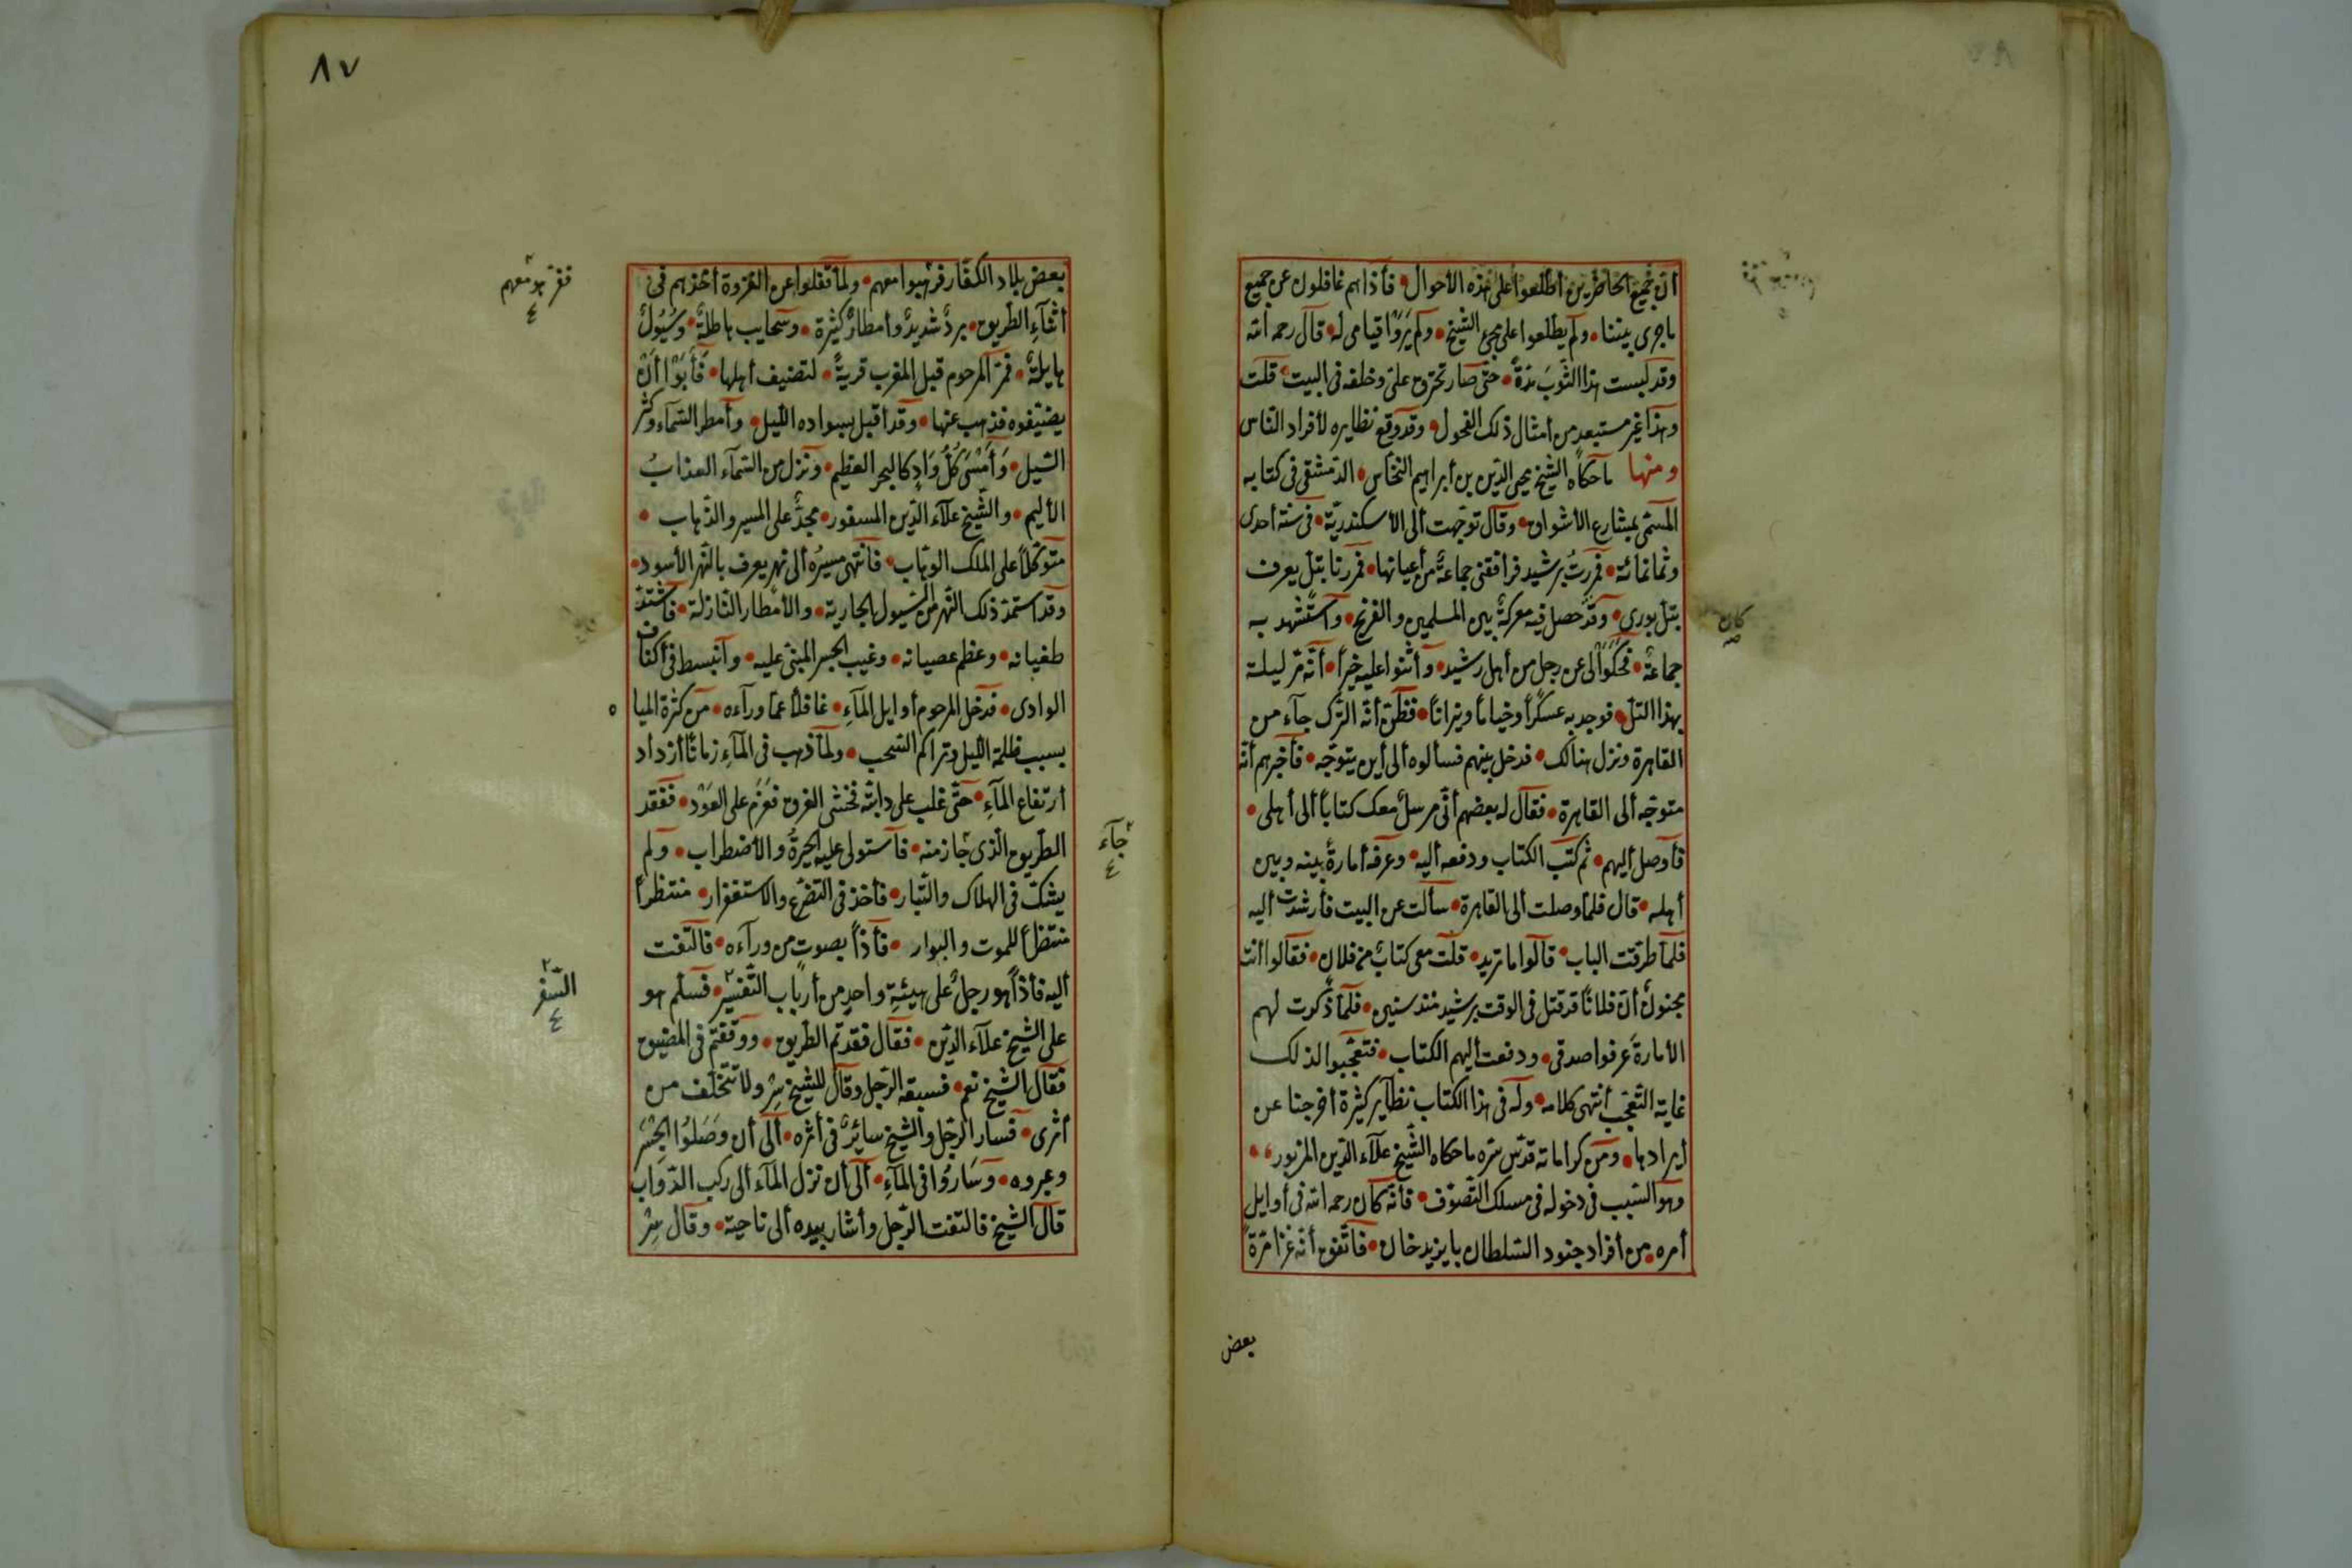 أن جميع الحاضرين أطلعوا على هذه الأحوال • فأذا هم غافلون عن جميع
ما جرى بيننا • ولم يطلعوا على مجئ الشيخ • ولم يَرَوْا قيامى له • قال رحمه الله
وقد لبست هذا الثوبَ مدّةً • حتى صار تحترق علىّ وخلفه فى البيت • قلت
وهذا غير مستبعد من أمثال ذلك الفحول • وقد وقع نظايره لأفراد الناس
ومنها ما حكاه الشيخ محيى الدين بن أبراهيم النخّاس • الدمشقى فى كتابه
المسمّى بمشارع الأشواق • وقال توجّهت ألى الأسكندريّة • فى سنة أحدى
وثمانمائة • فمررتُ برشيد فرافقنى جماعةٌ من أعيانها • فمررنا بتلّ يعرف
بتلّ بورى • وقد حصل فيه معركة بين المسلمين والفرنج • وٱستشهد به
جماعة • فحكَوْا لى عن رجل من أهل رشيد • وأثنوا عليه خيراً • أنّه مرّ ليلة
بهذا التلّ • فوجد به عسكراً وخياماً ونيراناً • فظنّ أنّه الترك جآء من
القاهرة ونزل هنالك • فدخل بينهم فسألوه ألى أين يتوجّه • فأخبرهم أنّه
متوجّه ألى القاهرة • فقال له بعضهم أنّى مرسلٌ معك كتاباً ألى أهلى •
فأوصل أليهم • ثم كتب الكتاب ودفعه أليه • وعرّفه أمارةً بينه وبين
أهله • قال فلمّا وصلت ألى القاهرة • سألت عن البيت فأرشدت أليه
فلمّا طرقت الباب • قالوا ما تريد • قلت معى كتابٌ من فلان • فقالوا أنت
مجنونٌ أنّ فلاناً قد قتل فى الوقت برشيد منذ سنين • فلمّا ذكرت لهم
الأمارةَ عرفوا صدقى • ودفعت أليهم الكتاب • فتعجّبوا لذلك
غاية التعجّب أنتهى كلامه • وله فى هذا الكتاب نظآير كثيرة أخرجنا عن
أيرادها • ومن كراماته قدّس سرّه ما حكاه الشّيخ علآء الدّين المزبور •
وهو السّبب فى دخوله فى مسلك التصوّف • فأنّه كان رحمه الله فى أوايل
أمره من أفراد جنود السّلطان بايزيد خان • فاتّفق أنّه غزا مرّةً
كان
صح
بعض
٨٧
بعض بلاد الكفّار فذهبوا معهم • ولمّا قفلوا عن الغزوة أخذهم فى
أثنآءِ الطّريق • بردٌ شديدٌ وأمطارٌ كثيرة • وسحايب هاطلةٌ • وسُيُولٌ
هايلةٌ • فمرّ المرحوم قبل المغرب قريةً • لتضيف أهلها • فأَبَوْا أَنْ
يضيّفوه فذهب عنها • وقد أقبل بسواده اللّيل • وأمطر السّمآء وكثر
السّيل • وَأَمْسَى كُلُّ وَادٍ كالبحر العظيم • ونزل من السّمآء العذابُ
الأليم • والشّيخ علآء الدّين المسفور • مجدٌّ على المسير والذّهاب •
متوكّلاً على الملك الوهّاب • فأنتهى مسيرُه ألى نهر يعرف بالنّهر الأسود •
وقد استمدّ ذلك النّهر من السّيول الجارية • والأمطار النّازلة • فاشتدّ
طغيانه • وعظم عصيانه • وغيب الجسر المبنىّ عليه • وٱنبسط فى أكناف
الوادى • فدخل المرحوم أوايل المآءِ • غافلاً عمّا ورآءه • من كثرة المياه
بسبب ظلمة اللّيل وتراكم السّحب • ولمّا ذهب فى المآءِ زماناً أزداد
أرتفاع المآءِ • حتّى غلب على دابّته فخشى الغرق فعَزَم على العَوْد • ففقد
الطّريق الّذى جاز منه • فٱستولى عليه الحيرةُ والأضطراب • ولم
يشكّ فى الهلاك والتّبار • فأخذ فى التضرّع والاستغفار • منتظراً
منتظراً للموت والبوار • فأذاً بصوت من ورآءه • فالتفت
أليه فأذاً هو رجلٌ على هيئةِ واحدٍ من أرباب التّفسير • فسلّم هو
على الشّيخ علآء الدّين • فقال فقدتم الطّريق • ووقفتم فى المضيق
فقال الشّيخ نعم • فسبقه الرّجل وقال للشّيخ سِرْ ولا تتخلّف من
أثرى • فسار الرّجل والشّيخ سائرٌ فى أثره • ألى أن وَصَلُوا الجسر
وعبروه • وسَارُوا فى المآءِ • ألى أن نزل المآء ألى ركب الدّواب
قال الشّيخ فالتفت الرّجل وأشار بيده ألى ناحية • وقال سِرْ
جآء
٤
السّفر
٤